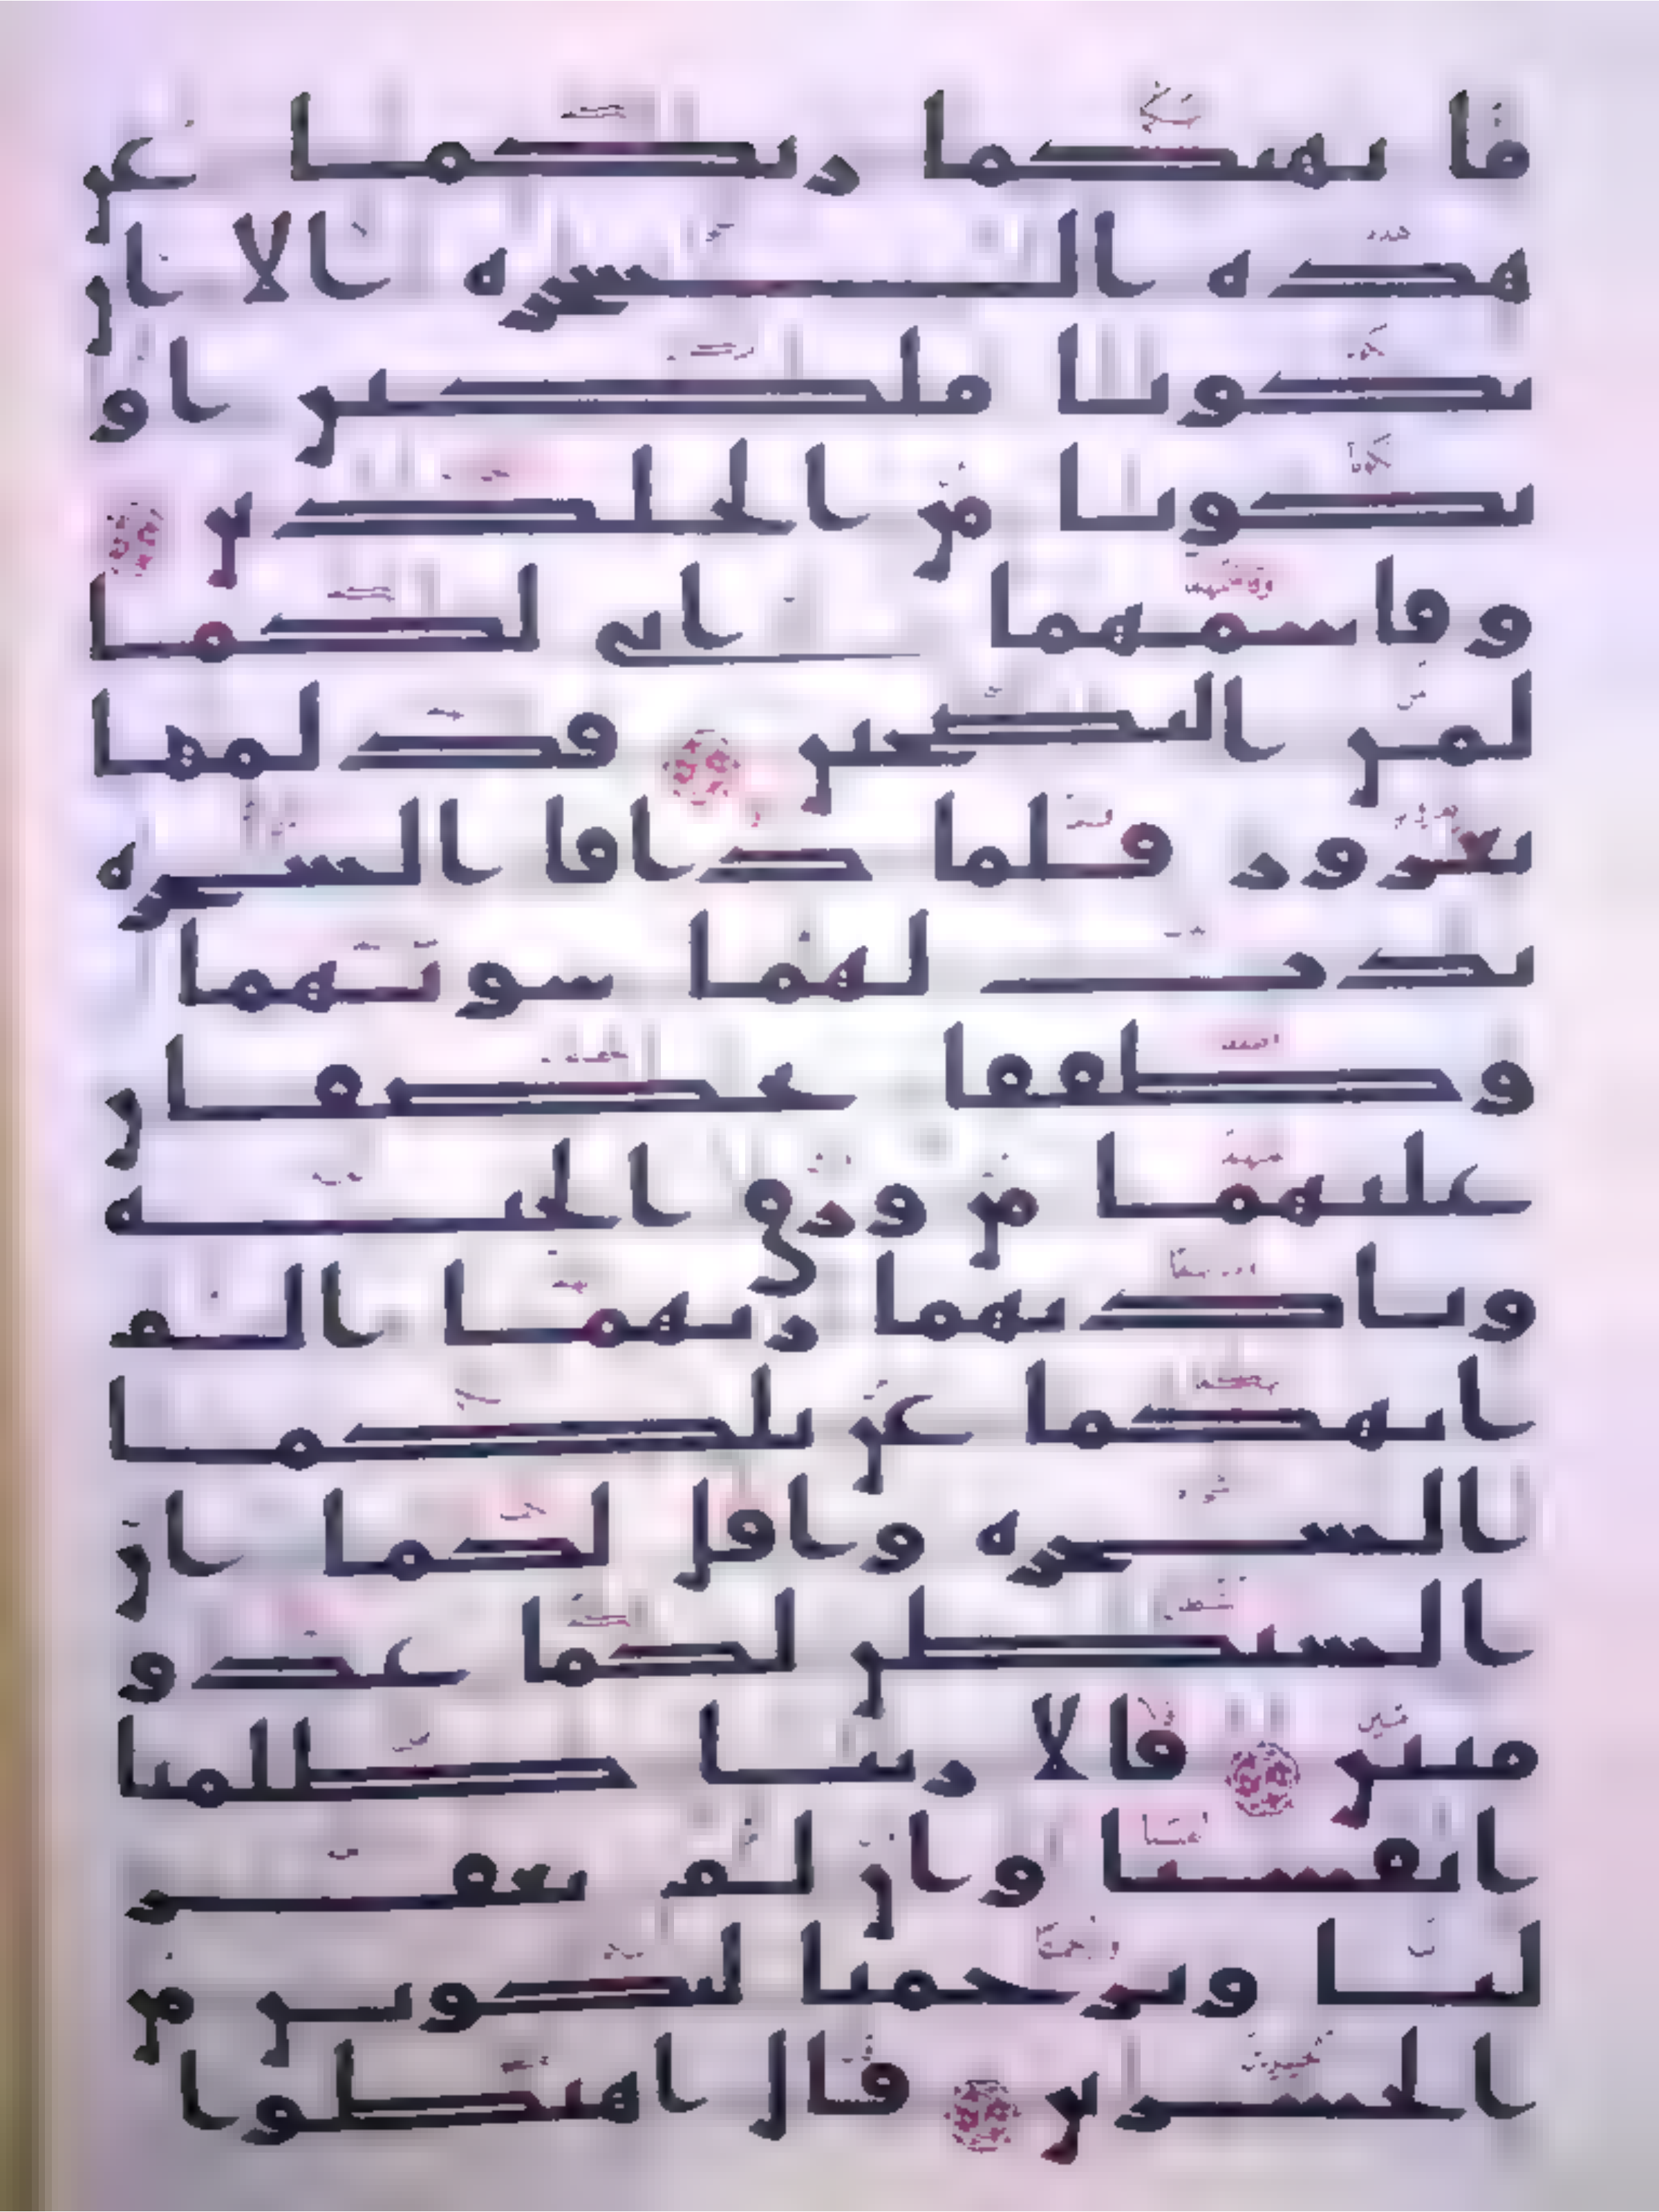 ما نهىكما ربكما عن
هذه الشجره الا ان
تكونا ملكين او
تكونا من الخلدين
وقاسمهما انى لكما
لمن النصحين فدلهما
بغرور فلما ذاقا الشجره
بدت لهما سوتهما
وطفقا يخصفان
عليهما من ورق الجنه
وناديهما ربهما الم
انهكما عن تلكما
الشجره واقل لكما ان
الشيطن لكما عدو
مبين قالا ربنا ظلمنا
انفسنا وان لم تغفر
لنا وترحمنا لنكونن من
الخسرين قال اهبطوا